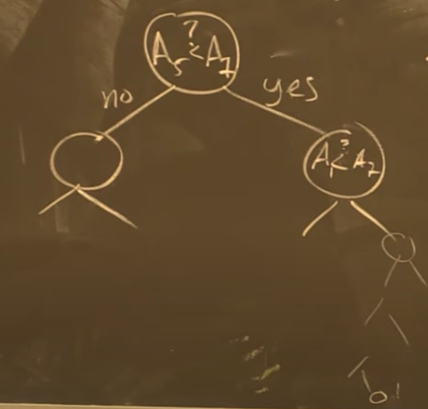 ?
A₅ < A₇
no
yes
?
A₁ < A₂